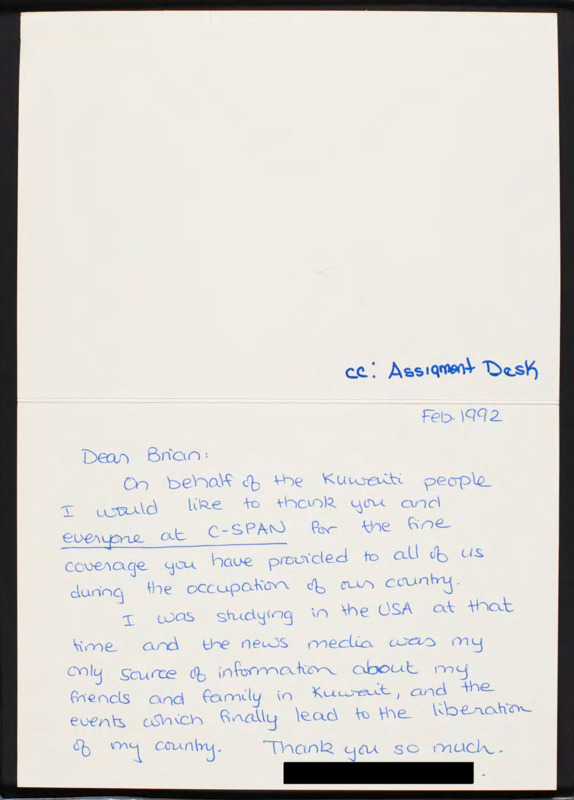 cc: Assigment Desk
Feb. 1992
Dear Brian:
On behalf of the Kuwaiti people
I would like to thank you and
everyone at C-SPAN for the fine
coverage you have provided to all of us
during the occupation of our country.
I was studying in the USA at that
time and the news media was my
only source of information about my
friends and family in Kuwait, and the
events which finally lead to the liberation
of my country. Thank you so much.